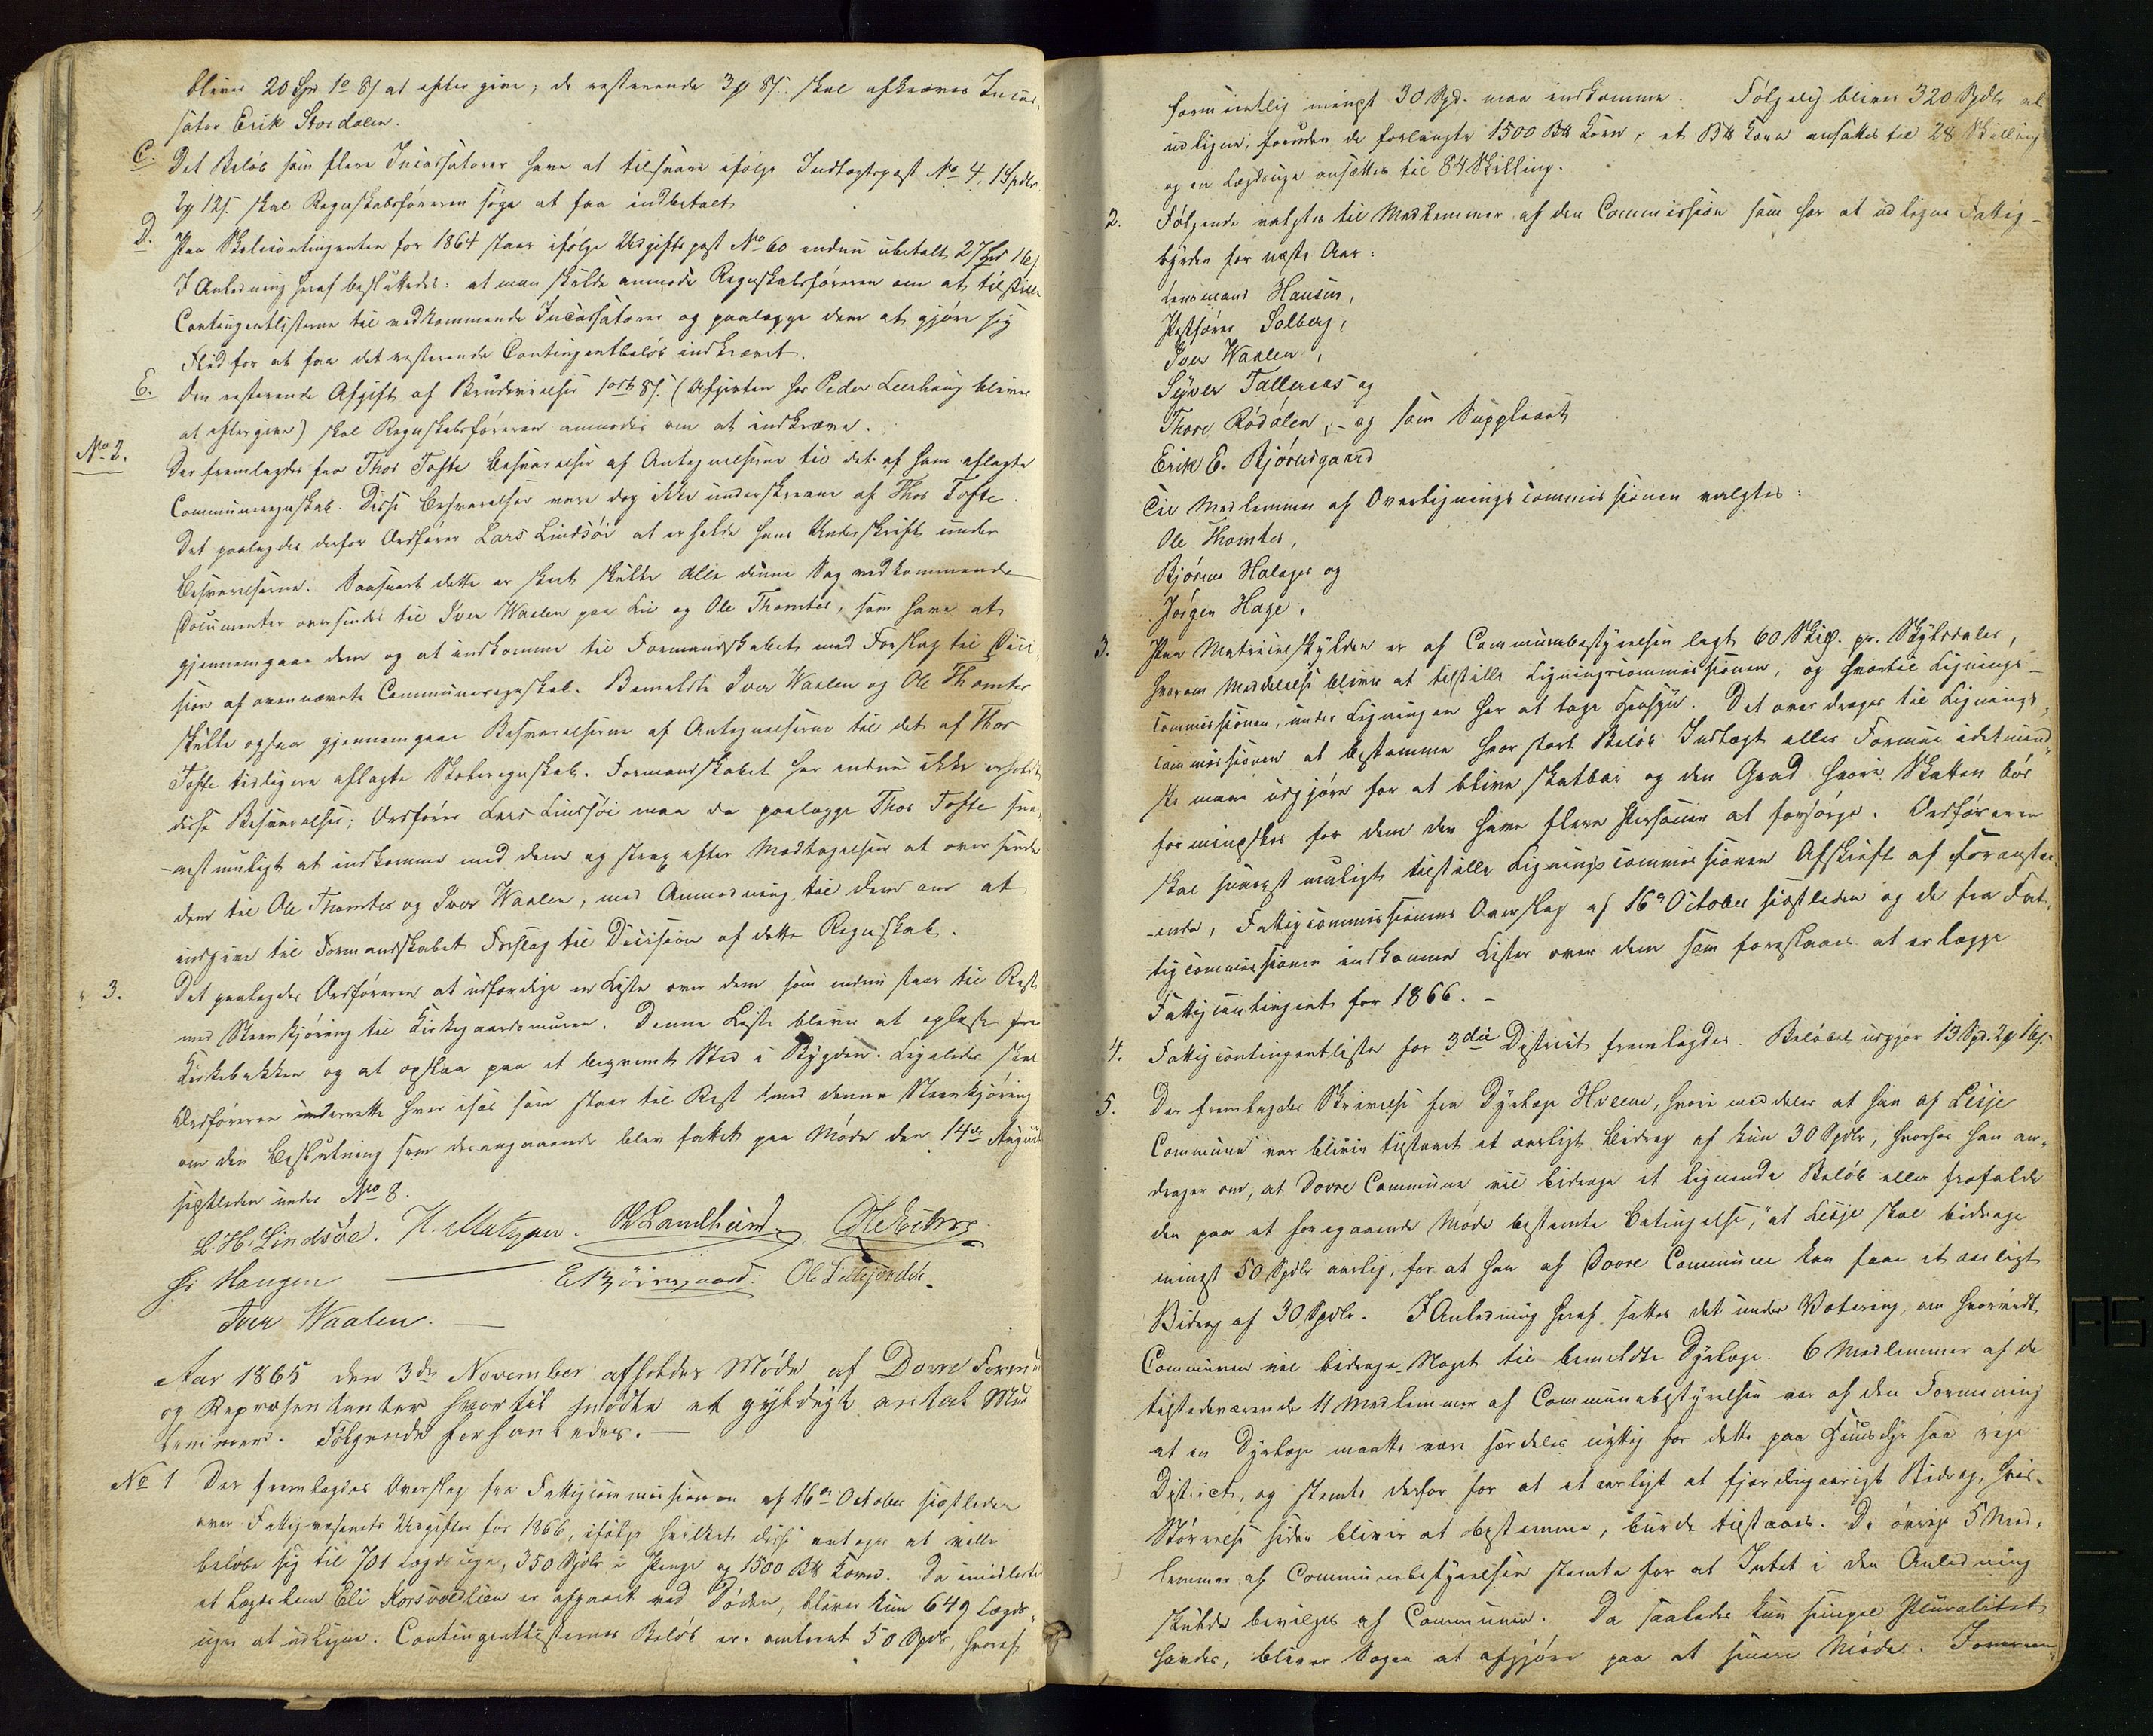 bliver 20 Spd 1 o 8 s at eftergive; de resterende 3 o 8 s. skal afkræves Incas-
sator Erik Stordalen.
C. Det Beløb som flere Incassatorer have at tilsvare ifølge Indtægtspost No 4, 1 Spdlr.
2 o 12 s. skal Regnskabsføreren søge at faa indbetalt
D. Paa Skolecontingenten for 1864 staar ifølge Udgiftspost No 60 endnu ubetalt 27 Spd 16 s.
I Anledning heraf besluttedes: at man skulde anmode Regnskabsføreren om at tilstille
Contingentlisterne til vedkommende Incassatorer og paalægge dem at gjøre sig
Flid for at faa det resterende Contingentbeløb indkrævet.
E. Den resterende Afgift af Brændeviin 1 ort 8 s. (Afgivten for Peder Leerhaug bliver
at eftergive) skal Regnskabsføreren anmodes om at indkræve.
No 2. Der fremlagdes fra Thor Tofte Besvarelser af Antegnelserne til det af ham aflagte
Communeregnskab. Disse Besvarelser vare dog ikke underskrevne af Thor Tofte.
Det paalagdes derfor Ordfører Lars Lindsøe at erholde hans Underskrift under
Besvarelserne. Saasnart dette er skeet skulle alle denne Sag vedkommende
Documenter oversendes til Iver Waalen paa Lie og Ole Thomter, som have at
gjennemgaae dem og at indkomme til Formandskabet med Forslag til Deci-
sion af ovennævnte Communeregnskab. Bemeldte Iver Waalen og Ole Thomter
skulle ogsaa gjennemgaae Besvarelserne af Antegnelserne til det af Thor
Tofte tidligere aflagte Skoleregnskab. Formandskabet har endnu ikke erholdt
disse Besvarelser; Ordfører Lars Lindsøe maa da paalægge Thor Tofte sna-
-rest muligt at indkomme med dem og strax efter Modtagelsen at oversende
dem til Ole Thomter og Iver Waalen, med Anmodning til dem om at
indgive til Formandskabet Forslag til Decision af dette Regnskab.
" 3. Det paalagdes Ordføreren at udfærdige en Liste over dem som endnu staar til Rest
med Steenkjøring til Kirkegaardsmuren. Denne Liste bliver at oplæse fra
Kirkebakken og at opslaa paa et beqvemt Sted i Bygden. Ligeledes skal
Ordføreren underrette hver især som staar til Rest med denne Steenkjøring
om den Beslutning som desangaaende blev fattet paa Møde den 14de August
sidstleden under No 8.
L. H. Lindsøe. H. Matzow. O Landheim O Ekre
Hr Haugen E Bjørnsgaard. Ole Lillefjordet.
Iver Waalen.
Aar 1865 den 3de November afholdes Møde af Dovre Form
og Repræsentanter hvortil mødte et gyldigt antal Med
lemmer. Følgende forhandledes.—
No 1 Der fremlagdes Overslag fra Fattigcommissionen af 16de October sidstleden
over Fattigvæsenets Udgifter for 1866, ifølge hvilket disse antages at ville
beløbe sig til 701 Lægduger, 350 Spdlr i Penge og 1500 B℔ Korn. Da imidlertid
et Lægdslem Eli Korsvoldlien er afgaaet ved Døden, bliver kun 649 Lægds-
uger at udligne. Contingentlisternes Beløb er omtrent 50 Spdlr, hvoraf
formeentlig mingst 30 Spd. maa indkomme. Følgelig bliver 320 Spdlr at
udligne, foruden de forlangte 1500 B℔ Korn; et B℔ Korn ansættes til 28 Skilling
og en Lægduge ansættes til 84 Skilling.
2. Følgende valgtes til Medlemmer af den Commission som har at udligne Fattig-
byrden for næste Aar:
Lensmand Hansen,
Postfører Solberg,
Iver Waalen,
Syver Talleraas og
Thore Rødølen; - og som Suppleant
Erik E. Bjørnsgaard
Til Medlemmer af Overligningscommissionen valgtes:
Ole Thomter,
Bjørner Holager og
Jørgen Hage.
3. Paa Matriculskylden er af Communebestyrelsen lagt 60 Skill. pr. Skylddaler,
hvorom Meddelelse bliver at tilstille Ligningscommissionen, og hvortil Lignings-
commissionen, under Ligningen har at tage Hensyn. Det overdrages til Lignings-
commissionen at bestemme hvor stort Beløb Indtægt eller Formue idetmind-
ste maae udgjøre for at blive skatbar og den Grad hvori Skatten bør
formindskes for dem der have flere Personer at forsørge. Ordføreren
skal snarest muligt tilstille Ligningscommissionen Afskrift af Foranstaa-
-ende, Fattigcommissionens Overslag af 16de October sidstleden og de fra Fat-
-tigcommissionen indkomne Lister over dem som foreslaaes at erlægge
Fattigcontingent for 1866. -
4. Fattigcontingentliste for 3die District fremlagdes. Beløbet udgjør 13 Spd. 2 o 16 s.
5. Der fremlagdes Skrivelse fra Dyrlæge Hveem, hvori meddeles at han af Lesje
Commune var bleven tilstaaet et aarligt Bidrag af kun 30 Spdlr, hvorfor han an-
drager om, at Dovre Commune vil bidrage et lignende Beløb eller frafalde
den paa et foregaaende Møde bestemte Betingelse, "at Lesje skal bidrage
mingst 50 Spdlr aarlig, for at han af Dovre Commune kan faae et aarligt
Bidrag af 30 Spdlr. I Anledning heraf sattes det under Votering, om hvorvidt
Communen vil bidrage Noget til bemeldte Dyrlæge. 6 Medlemmer af de
tilstedeværende 11 Medlemmer af Communebestyrelsen var af den Formening
at en Dyrlæge maatte være særdeles nyttig for dette paa Huusdyr saa rige
District, og stemte derfor for at et aarligt et fjerdingaarigt Bidrag, hvis
Størrelse siden bliver at bestemme, burde tilstaaes. De øvrige 5 Med-
lemmer af Communebestyrelsen stemte for at Intet i den Anledning
skulde bevilges af Communen. Da saaledes kun simpel Pluralitet
havdes, bliver Sagen at afgjøre paa et senere Møde.